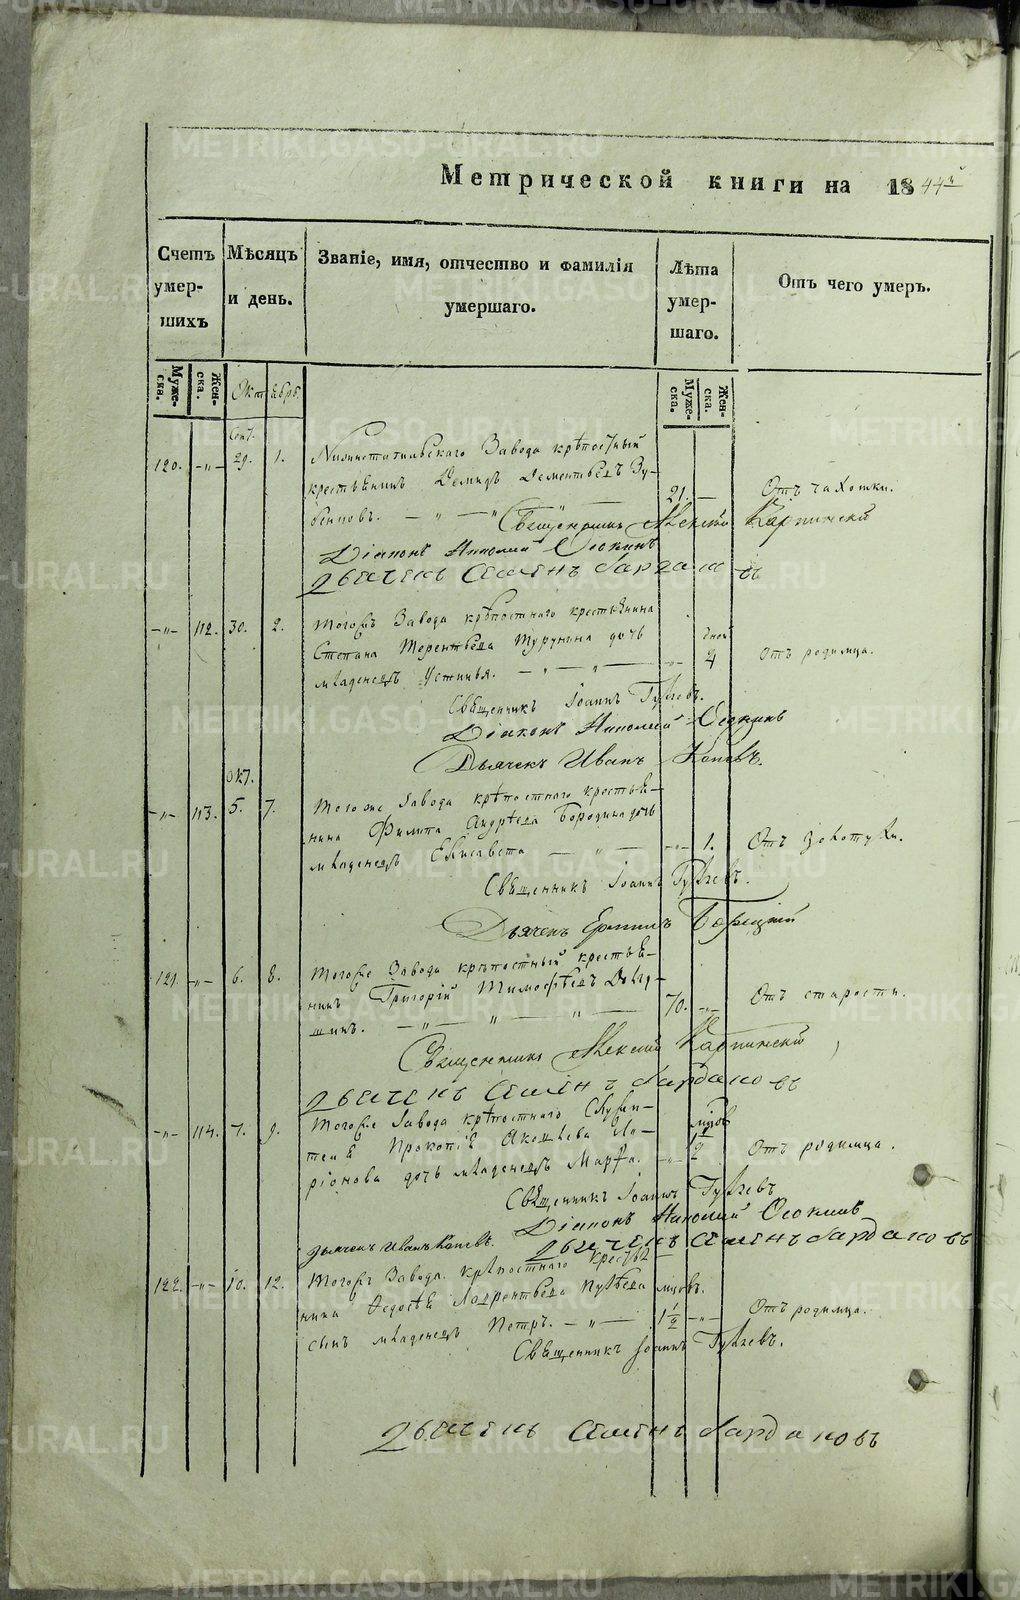 Метрической книги на 1844й
Счетъ умершихъ
Мѣсяцъ и день.
Званіе, имя, отчество и фамилія умершаго.
Лѣта умершаго.
Отъ чего умеръ.
Мужеска. Женска. Октябрь. Мужеска. Женска.
Сент.
120. -„- 29. 1. Нижнетагильскаго Завода крѣпостный
крестьянинъ Демидъ Дементьевъ
21. — Отъ чахотки.
Священникъ Алексій Карпинскій
Діаконъ Николай Осокинъ
Дьячекъ Семенъ Бардаковъ
-„- 112. 30. 2. Тогожъ Завода крѣпостнаго крестьянина
Степана Терентьева Турунина дочь
младенецъ Устинья. -„- дней 4 Отъ родимца.
Священникъ Іоаннъ
Діаконъ Николай Осокинъ
Дьячекъ Иванъ
Окт.
-„- 113. 5. 7. Тогоже Завода крѣпостнаго крестья-
нина Филипа Андрѣева Бородина дочь
младенецъ Елисавета — „ — -„- 1. Отъ золотухи.
Священникъ Іоаннъ
Дьячекъ
121. -„- 6. 8. Тогоже Завода крѣпостный крестья-
нинъ Григорій Тимофѣевъ
шинъ. — „ — „ — „ — 70. -„- Отъ старости.
Священникъ Алексій Карпинскій
Дьячекъ Семенъ Бардаковъ
-„- 114. 7. 9. Тогоже Завода крѣпостнаго Служи-
теля Прокопія Ила-
ріонова дочь младенецъ Марфа. -„- 2 Отъ родимца.
Священникъ Іоаннъ
Діаконъ Николай Осокинъ
Дьячекъ Иванъ
Дьячекъ Семенъ Бардаковъ
122. -„- 10. 12. Тогожъ Завода крѣпостнаго крестья-
нина Федосѣя Лаврентьева мцовъ.
сынъ младенецъ Петръ. — „ — 1 1/2 -„- Отъ родимца.
Священникъ Іоаннъ
Дьячекъ Семенъ Бардаковъ
METRIKI.GASO-URAL.RU